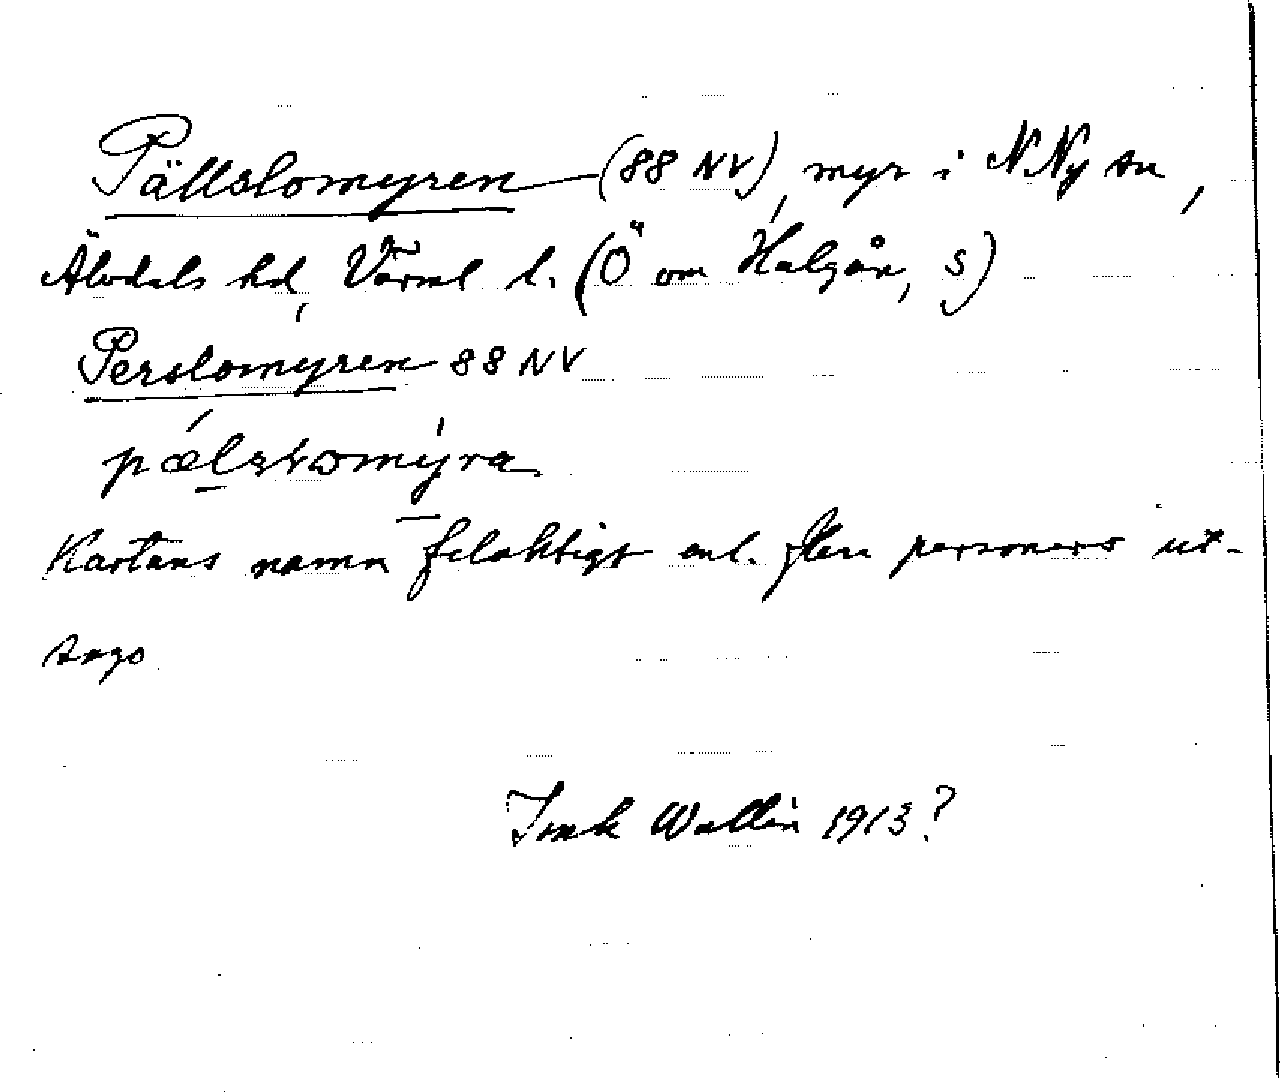 Pällslomyren (88 NV), myr i N Ny sn,
Älvdals hd, Värml l. (Ö om Halgån, S)
Perslomyren 88 NV
pælslomyra
Kartans namn felaktigt enl. flera personers ut-
sago
Isak Wallin 1913?